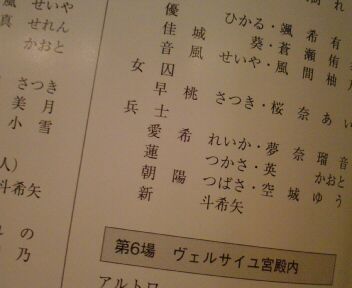 風 せいや
真 せれん
かおと
さつき
美 月
小 雪
人）
斗希矢
れ の
乃
優 ひかる・颯 希 有
佳 城 葵・蒼 瀬 侑
音 風 せいや・風 間 柚
女 囚
早 桃 さつき・桜 奈 あ い
兵 士
愛 希 れいか・夢 奈 瑠 音
蓮 つかさ・英 かおと
朝 陽 つばさ・空 城 ゆ う
新 斗希矢
第6場 ヴェルサイユ宮殿内
アルトワ